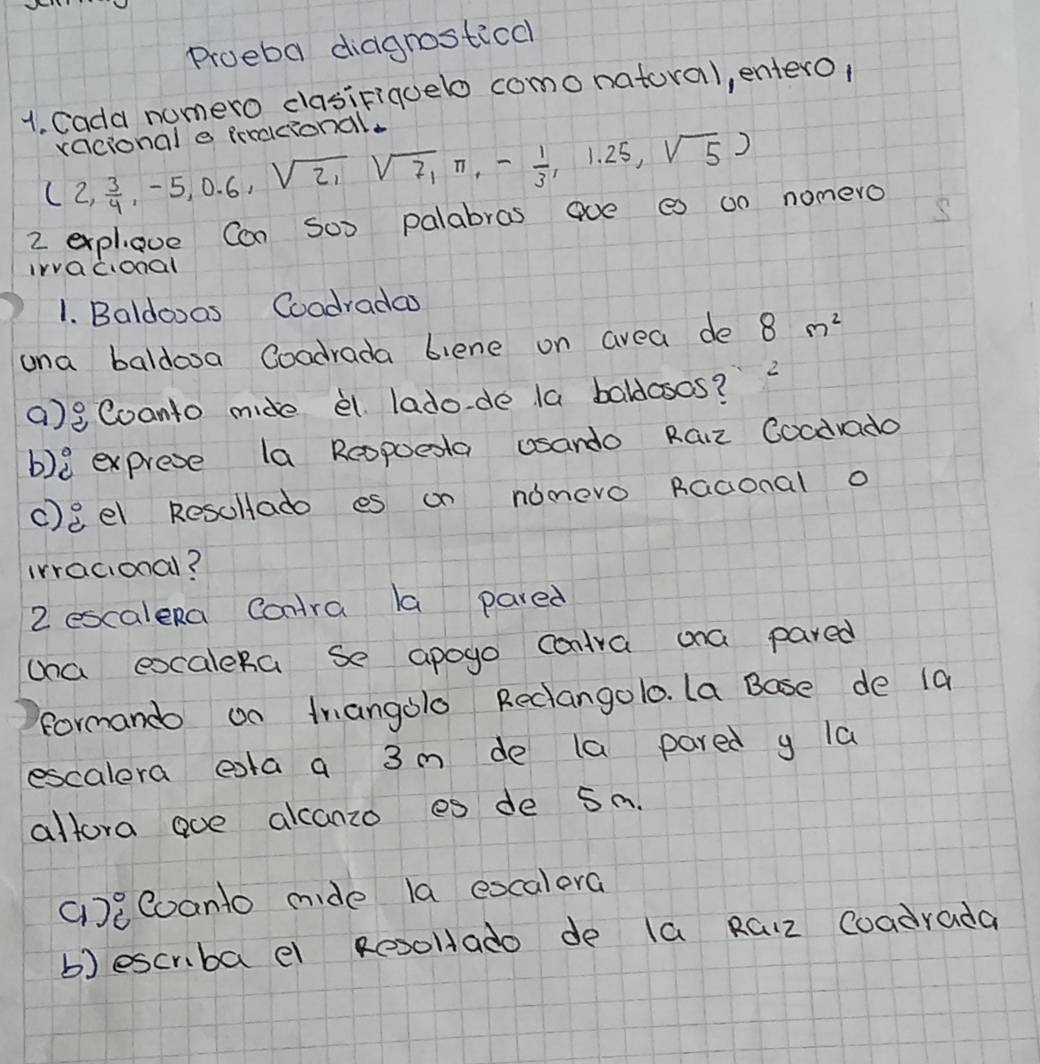 Prueba diagnostica
1. Cada numero clasifiquelo como natural, entero,
racional e irracional.
(2, 3/4, -5, 0.6, √2, √7, π, - 1/3, 1.25, √5)
2 explique Con sus palabras que es un numero
irracional
1. Baldosas Cuadradas
una baldosa Cuadrada tiene un area de 8 m²
a) ¿Cuanto mide el lado de la baldosas? ²
b) ¿ exprese la Respuesta usando Raiz Cuadrado
c) ¿ el Resultado es un número Racional o
irracional?
2 escaleRa Contra la pared
Una escaleRa se apoyo contra una pared
formando un triangulo Rectangulo. La Base de la
escalera esta a 3 m de la pared y la
altura que alcanzo es de 5 m.
a) ¿Cuanto mide la escalera
b) escriba el Resultado de la Raiz Cuadrada